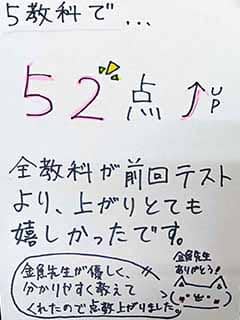 5教科で…
52点 UP
全教科が前回テスト
より、上がりとても
嬉しかったです。
先生
ありがとう!
先生が優しく、
分かりやすく教えて
くれたので点数上がりました。